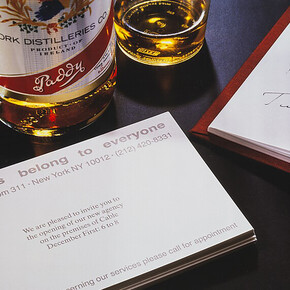 ORK DISTILLERIES CO
PRODUCT OF
IRELAND
Paddy
s belong to everyone
om 311 - New York NY 10012 - (212) 420-8331
We are pleased to invite you to
the opening of our new agency
on the premises of Cable
December First: 6 to 8
erning our services please call for appointment